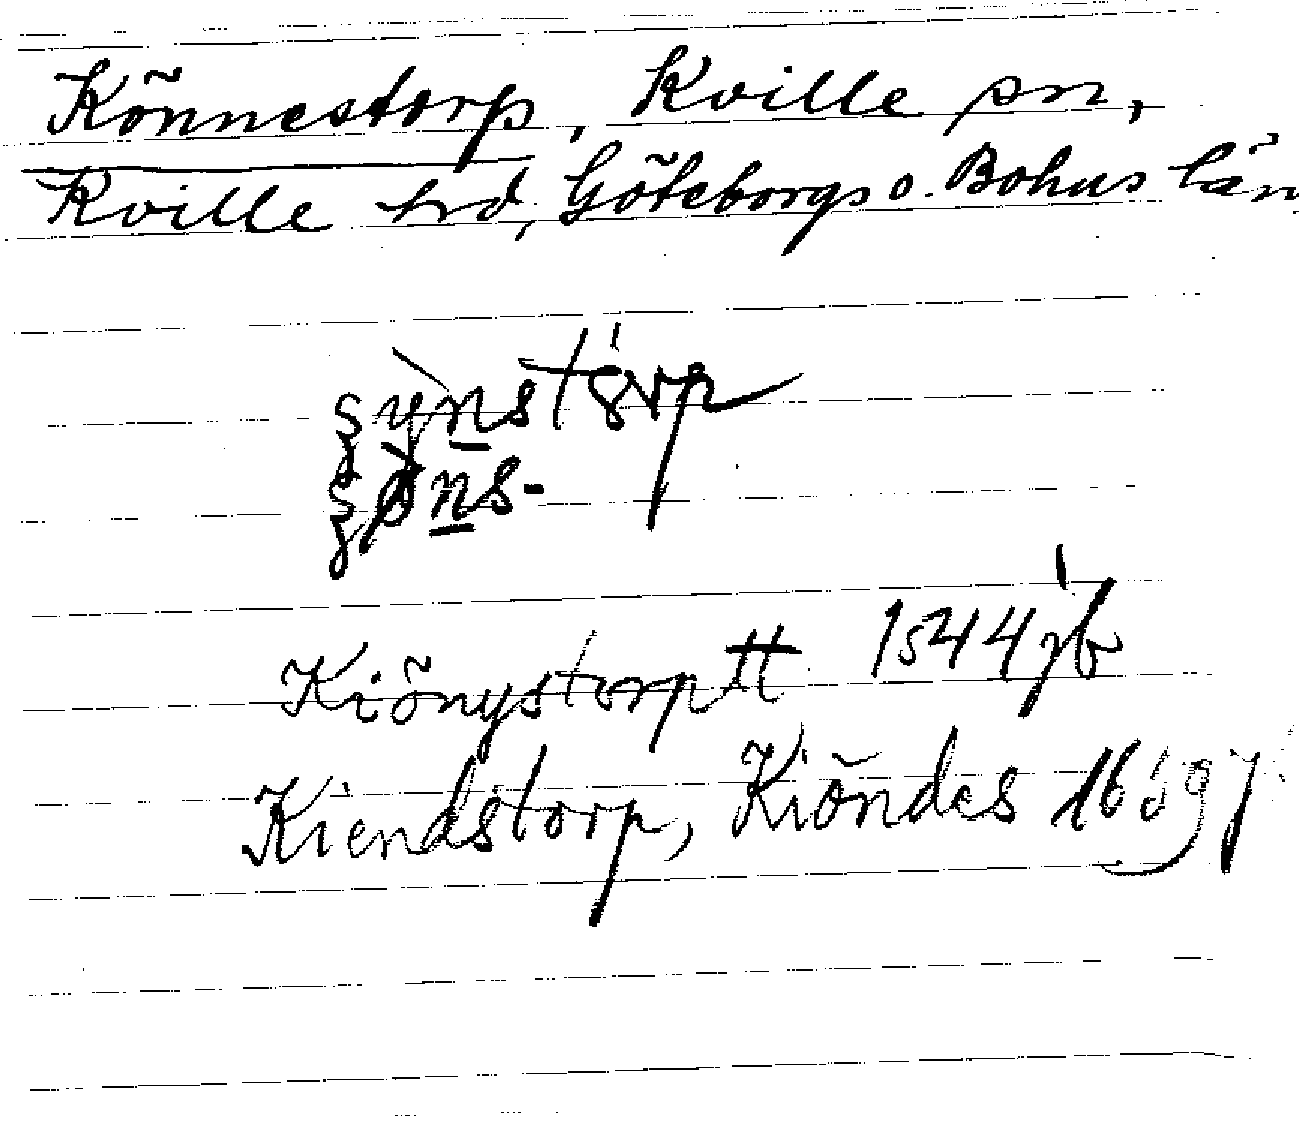 Könnestorp, Kville sn,
Kville hd, Göteborgs o. Bohus län
Kiönystorptt 1544 jb
Kiendstorp, Kiöndes 1659 j